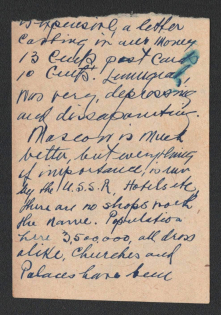 is expensive, a letter
costing in our money
13 cents post card
10 cents. Leningrad,
was very depressing
and dissapointing.
Mascow is much
better, but everything
of importance, is run
by the U.S.S.R. Hotels etc,
there are no shops worth
the name. Population
here 3,500,000, all dress
alike, Churches and
Palaces have been